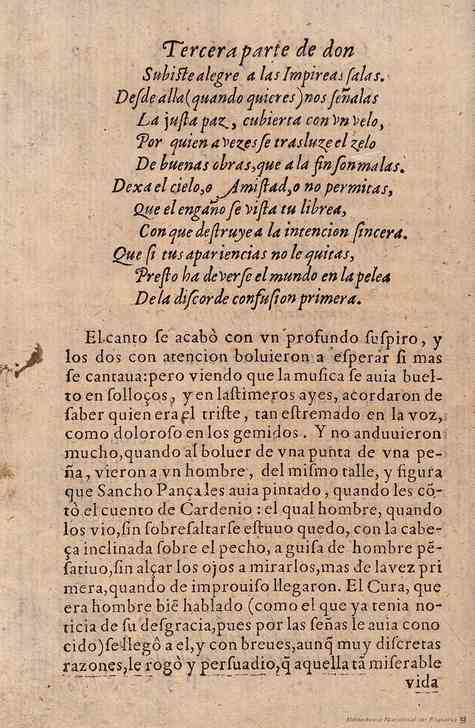 Tercera parte de don
Subiste alegre a las Impireas ſalas.
Deſde alla (quando quieres) nos ſeñalas
La juſta paz, cubierta con vn velo,
Por quien a vezes ſe trasluze el zelo
De buenas obras, que a la fin ſon malas.
Dexa el cielo, o Amiſtad, o no permitas,
Que el engaño ſe viſta tu librea,
Con que deſtruye a la intencion ſincera.
Que ſi tus apariencias no le quitas,
Preſto ha de verſe el mundo en la pelea
De la diſcorde confuſion primera.
El canto ſe acabò con vn profundo ſuſpiro, y
los dos con atencion boluieron a eſperar ſi mas
ſe cantaua: pero viendo que la muſica ſe auia buel-
to en ſolloços, y en laſtimeros ayes, acordaron de
ſaber quien era el triſte, tan eſtremado en la voz,
como doloroſo en los gemidos. Y no anduuieron
mucho, quando al boluer de vna punta de vna pe-
ña, vieron a vn hombre, del miſmo talle, y figura
que Sancho Pança les auia pintado, quando les cõ-
tò el cuento de Cardenio: el qual hombre, quando
los vio, ſin ſobreſaltarſe eſtuuo quedo, con la cabe-
ça inclinada ſobre el pecho, a guiſa de hombre pẽ-
ſatiuo, ſin alçar los ojos a mirarlos, mas de la vez pri
mera, quando de improuiſo llegaron. El Cura, que
era hombre biẽ hablado (como el que ya tenia no-
ticia de ſu deſgracia, pues por las ſeñas le auia cono
cido) ſe llegò a el, y con breues, aunq̃ muy diſcretas
razones, le rogò y perſuadio, q̃ aquella tã miſerable
vida
Biblioteca Nacional de España